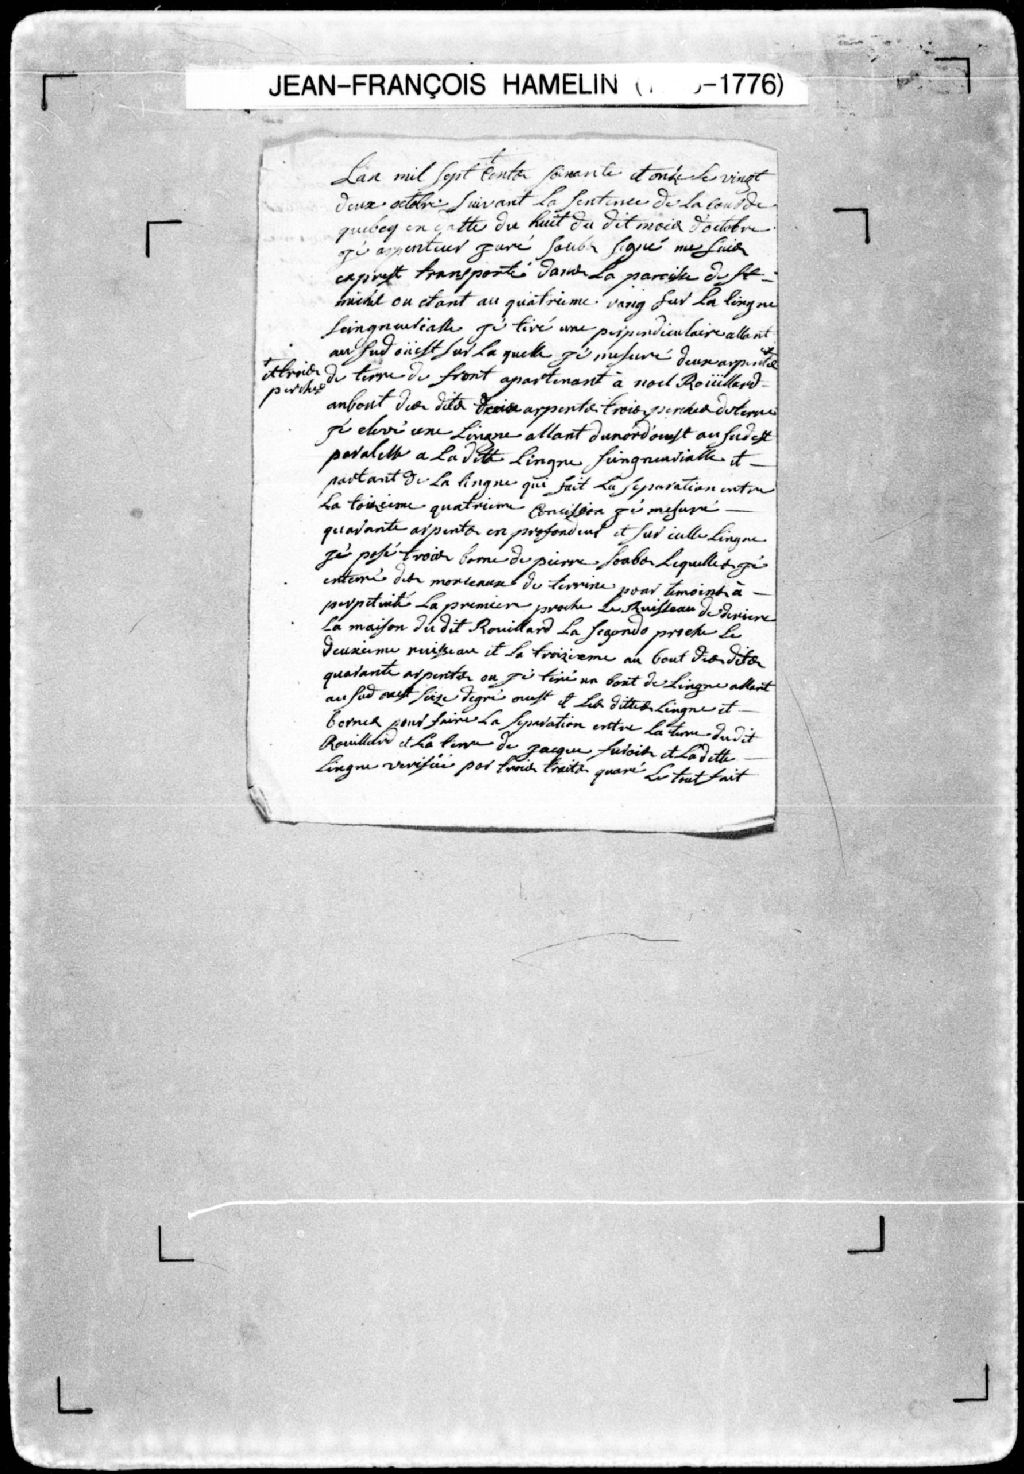 JEAN-FRANÇOIS HAMELIN (1 -1776)
L'an mil sept cents soixante et onze le vingt
deux octobre suivant la sentence de la cour de
quebeq en datte du huit du dit mois d'octobre
gé arpenteur juré soubs signé me suis
exprest transporté dans la paroisse de st-
michel ou etant au quatrieme rang sur la lingne
seingneurialle gé tiré une perpendiculaire allant
au sud ouest sur la quelle gé mesuré deux arpents
et trois perches
de terre de front apartenant à noel Roüillard
au bout des dits deux arpents trois perches de terre
gé elevé une Lingne allant du nord ouest au sud est
paralelle a la ditte lingne seingneurialle et
partant de la lingne qui fait la separation entre
la troizieme quatrieme Concession gé mesuré
quarante arpents en profondeur et sur icelle Lingne
gé posé trois borne de pierre soubs lequelles gé
enterré des morceaux de terrine pour temoins à
perpetuité la premiere proche le Ruisseau de deriere
la maison du dit Rouillard la segondo proche le
deuxieme ruisseau et la troizieme au bout des dits
quarante arpents ou gé tiré un bout de Lingne allant
au sud ouest seize degré ouest et les dittes Lingne et
bornes pour faire la separation entre la terre du dit
Rouillard et la terre de jacque et la ditte
Lingne verifiée par trois traits quaré le tout fait